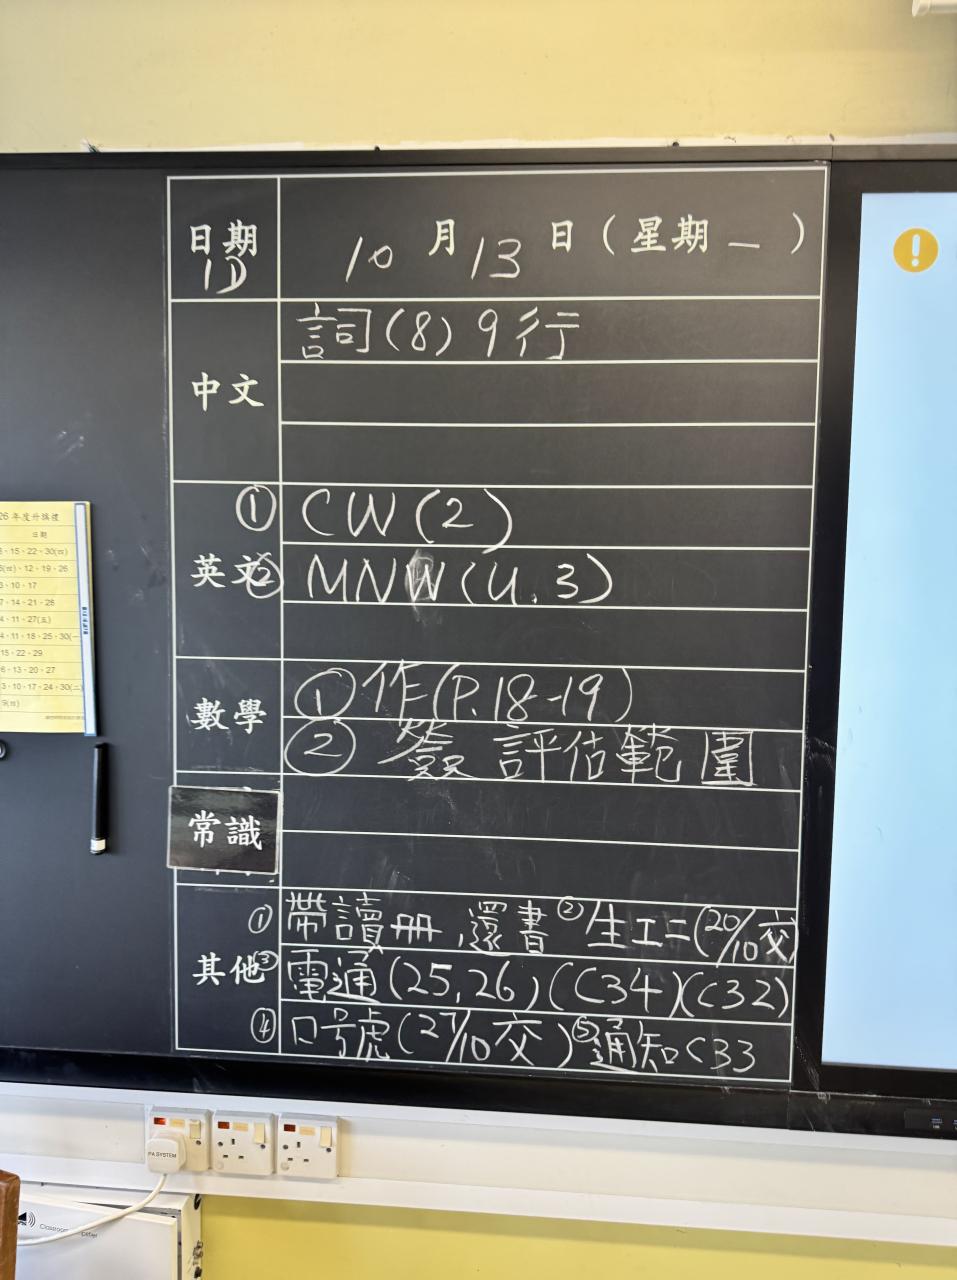 日期 10月13日(星期一)
1D
中文
詞(8) 9行
英文
① CW(2)
② MNW(U.3)
數學
① 作(P.18-19)
② 簽 評估範圍
常識
其他
① 帶讀冊,還書 ② 生工二(20/10交)
③ 電通(25,26)(C34)(C32)
④ 口號(27/10交) ⑤ 通知C33
26年度升旗禮
日期
15、22、30(四)
12、19、26
3、10、17
7、14、21、28
4、11、27(五)
4、11、18、25、30(一
15、22、29
6、13、20、27
3、10、17、24、30(二)
PA SYSTEM
Classroom